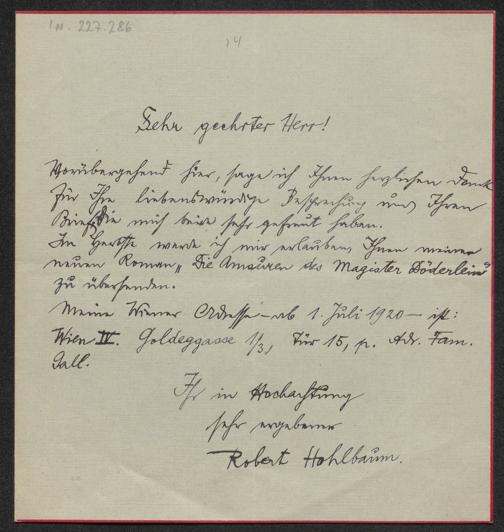 IN. 227.286
14
Sehr geehrter Herr!
Vorübergehend hier, sage ich Ihnen herzlichen Dank
für Ihre liebenswürdige Besprechung und Ihren
Brief, die mich beide sehr gefreut haben.
Im Herbste werde ich mir erlauben, Ihnen meinen
neuen Roman „Die Amouren des Magister Döderlein"
zu übersenden.
Meine Wiener Adresse – ab 1. Juli 1920 – ist:
Wien IV. Goldeggasse 1/3, Tür 15, p. Adr. Fam.
Gall.
Ihr in Hochachtung
sehr ergebener
Robert Hohlbaum.